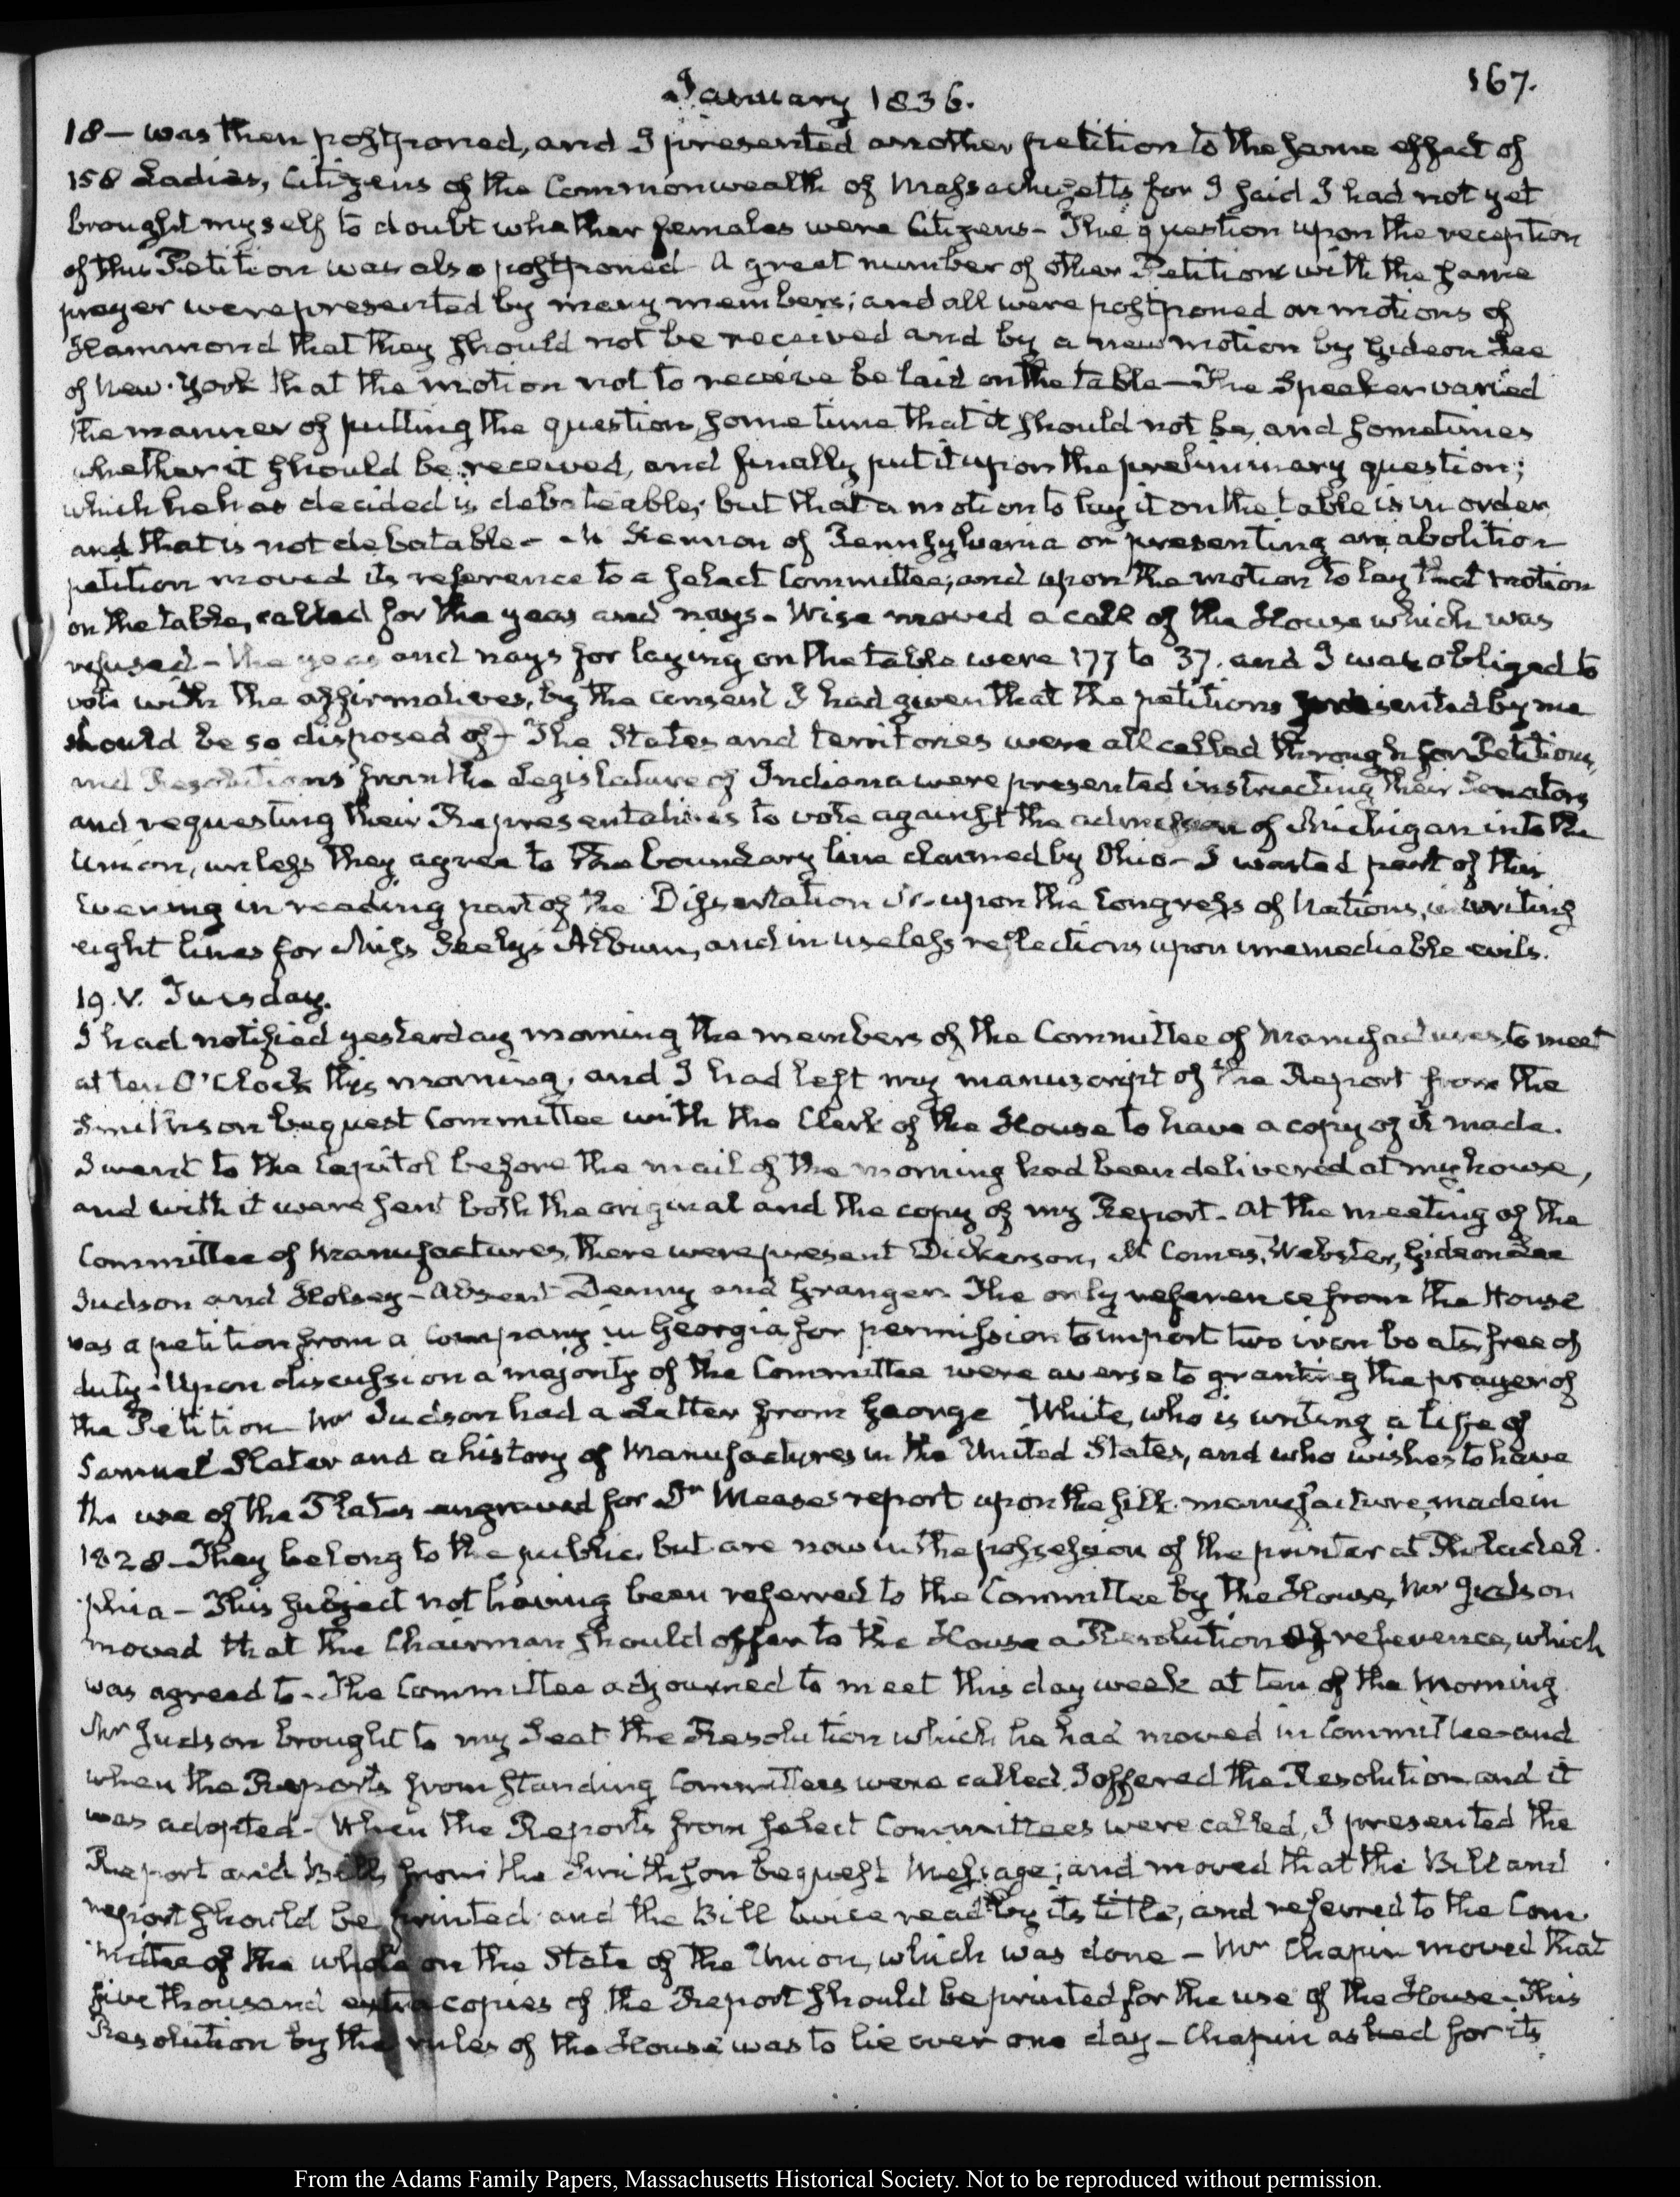 January 1836.
167.
18 — was then postponed, and I presented another petition to the same effect of
158 Ladies, Citizens of the Commonwealth of Massachusetts for I said I had not yet
brought myself to doubt whether females were Citizens – The question upon the reception
of this Petition was also postponed – A great number of other Petitions with the same
prayer were presented by many members; and all were postponed on motions of
Hammond that they should not be received and by a new motion by Gideon Lee
of New-York that the motion not to receive be laid on the table — The Speaker varied
the manner of putting the question, sometime that it should not be, and sometimes
whether it should be received, and finally put it upon the preliminary question;
which he has decided is debateable; but that a motion to lay it on the table is in order
and that is not debatable – Mr of Pennsylvania on presenting an abolition
petition moved its reference to a select Committee; and upon the motion to lay that motion
on the table, called for the yeas and nays – Wise moved a call of the House which was
refused – the yeas and nays for laying on the table were 177 to 37. and I was obliged to
vote with the affirmatives, by the consent I had given that the petitions presented by me
should be so disposed of – The States and territories were all called through for Petitions,
and Resolutions from the Legislature of Indiana were presented instructing their Senators
and requesting their Representatives to vote against the admission of Michigan into the
Union, unless they agree to the boundary line claimed by Ohio – I wasted part of this
Evening in reading part of the Dissertation upon the Congress of Nations, in writing
eight lines for Miss Seely's Album, and in useless reflections upon irremediable evils.
19. V. Tuesday.
I had notified yesterday morning the members of the Committee of Manufactures to meet
at ten O'Clock this morning, and I had left my manuscript of the Report from the
Smithson bequest Committee with the Clerk of the House to have a copy of it made.
I went to the Capitol before the mail of the morning had been delivered at my house,
and with it were sent both the original and the copy of my Report – At the meeting of the
Committee of Manufactures, there were present Dickerson, Mc Comas, Webster, Gideon Lee
Judson and Holsey – Absent Denny and Granger. The only reference from the House
was a petition from a Company in Georgia for permission to import two iron boats, free of
duty – Upon discussion a majority of the Committee were averse to granting the prayer of
the Petition – Mr Judson had a Letter from George White, who is writing a life of
Samuel Slater and a history of Manufactures in the United States, and who wishes to have
the use of the Plates engraved for Dr Mease's report upon the silk manufacture, made in
1828 – They belong to the public, but are now in the possession of the printer at Philadel-
phia – This subject not having been referred to the Committee by the House, Mr Judson
moved that the Chairman should offer to the House a Resolution of reference, which
was agreed to – The Committee adjourned to meet this day week at ten of the Morning
Mr Judson brought to my Seat the Resolution which he had moved in Committee and
when the Reports from standing Committees were called I offered the Resolution and it
was adopted – When the Reports from select Committees were called, I presented the
Report and Bill from the Smithson bequest Message; and moved that the Bill and
report should be printed and the Bill twice read by its title, and referred to the Com-
mittee of the whole on the State of the Union, which was done – Mr Chapin moved that
five thousand extra copies of the Report should be printed for the use of the House – This
Resolution by the rules of the House was to lie over one day – Chapin asked for its
From the Adams Family Papers, Massachusetts Historical Society. Not to be reproduced without permission.